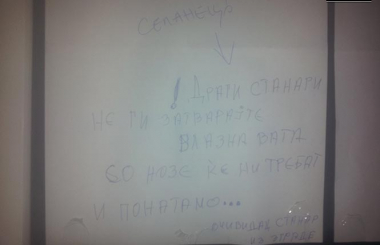 СЕЛАНЕЦУ
! ДРАГИ СТАНАРИ
НЕ ГИ ЗАТВАРАЈТЕ
ВЛАЗНА ВАТА
СО НОЗЕ ЌЕ НИ ТРЕБАТ
И ПОНАТАМО...